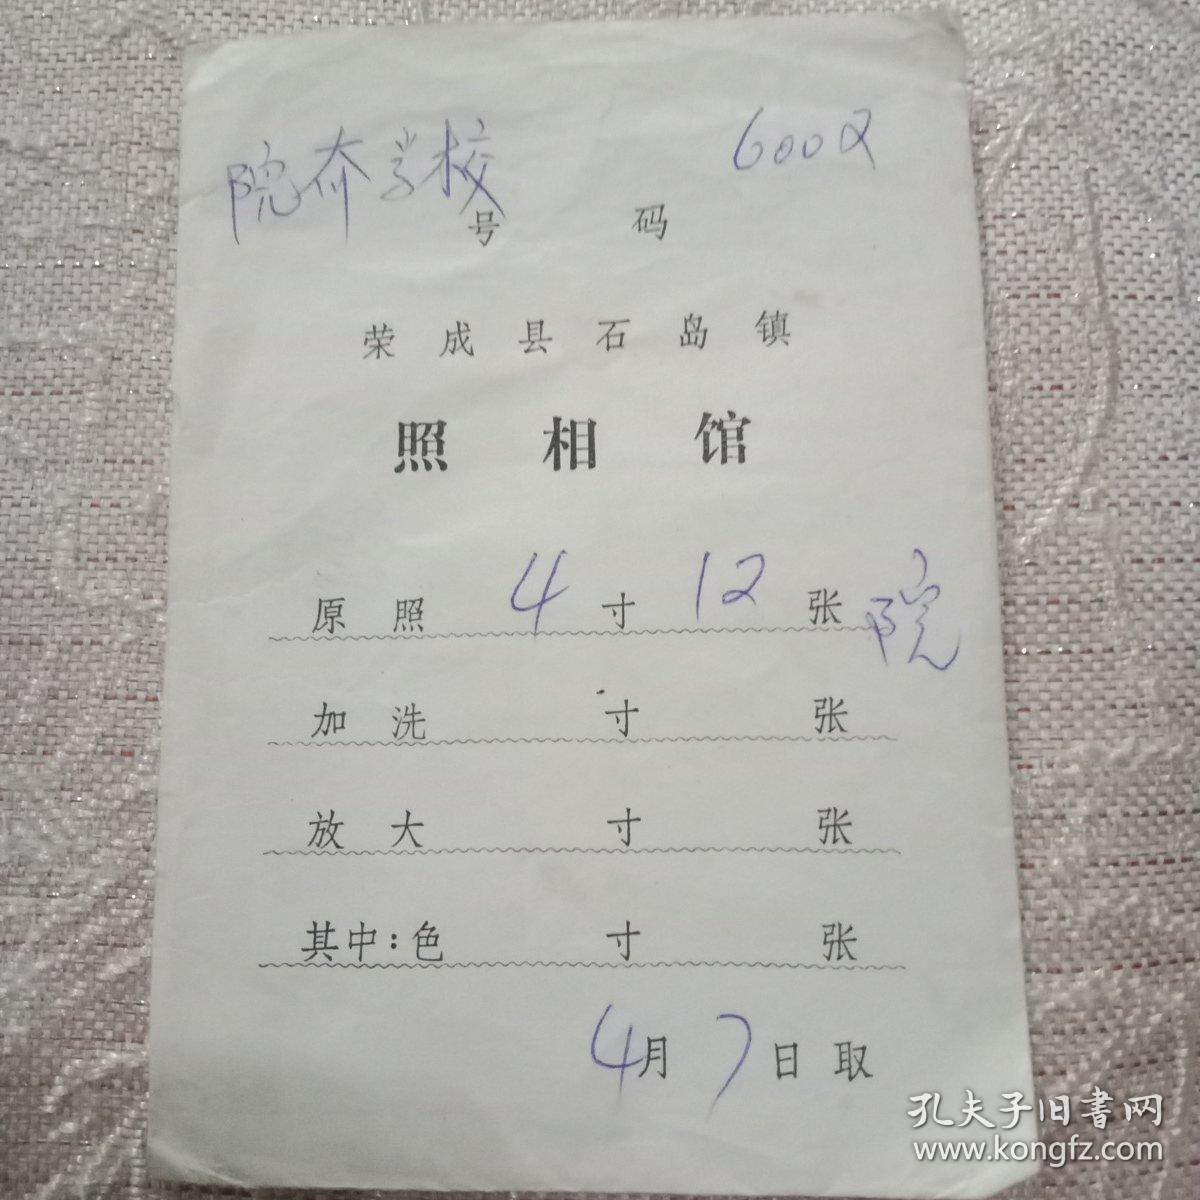 院夼学校 6002
号 码
荣成县石岛镇
照相馆
原照 4 寸 12 张 院
加洗 寸 张
放大 寸 张
其中:色 寸 张
4月7日取
孔夫子旧书网
www.kongfz.com